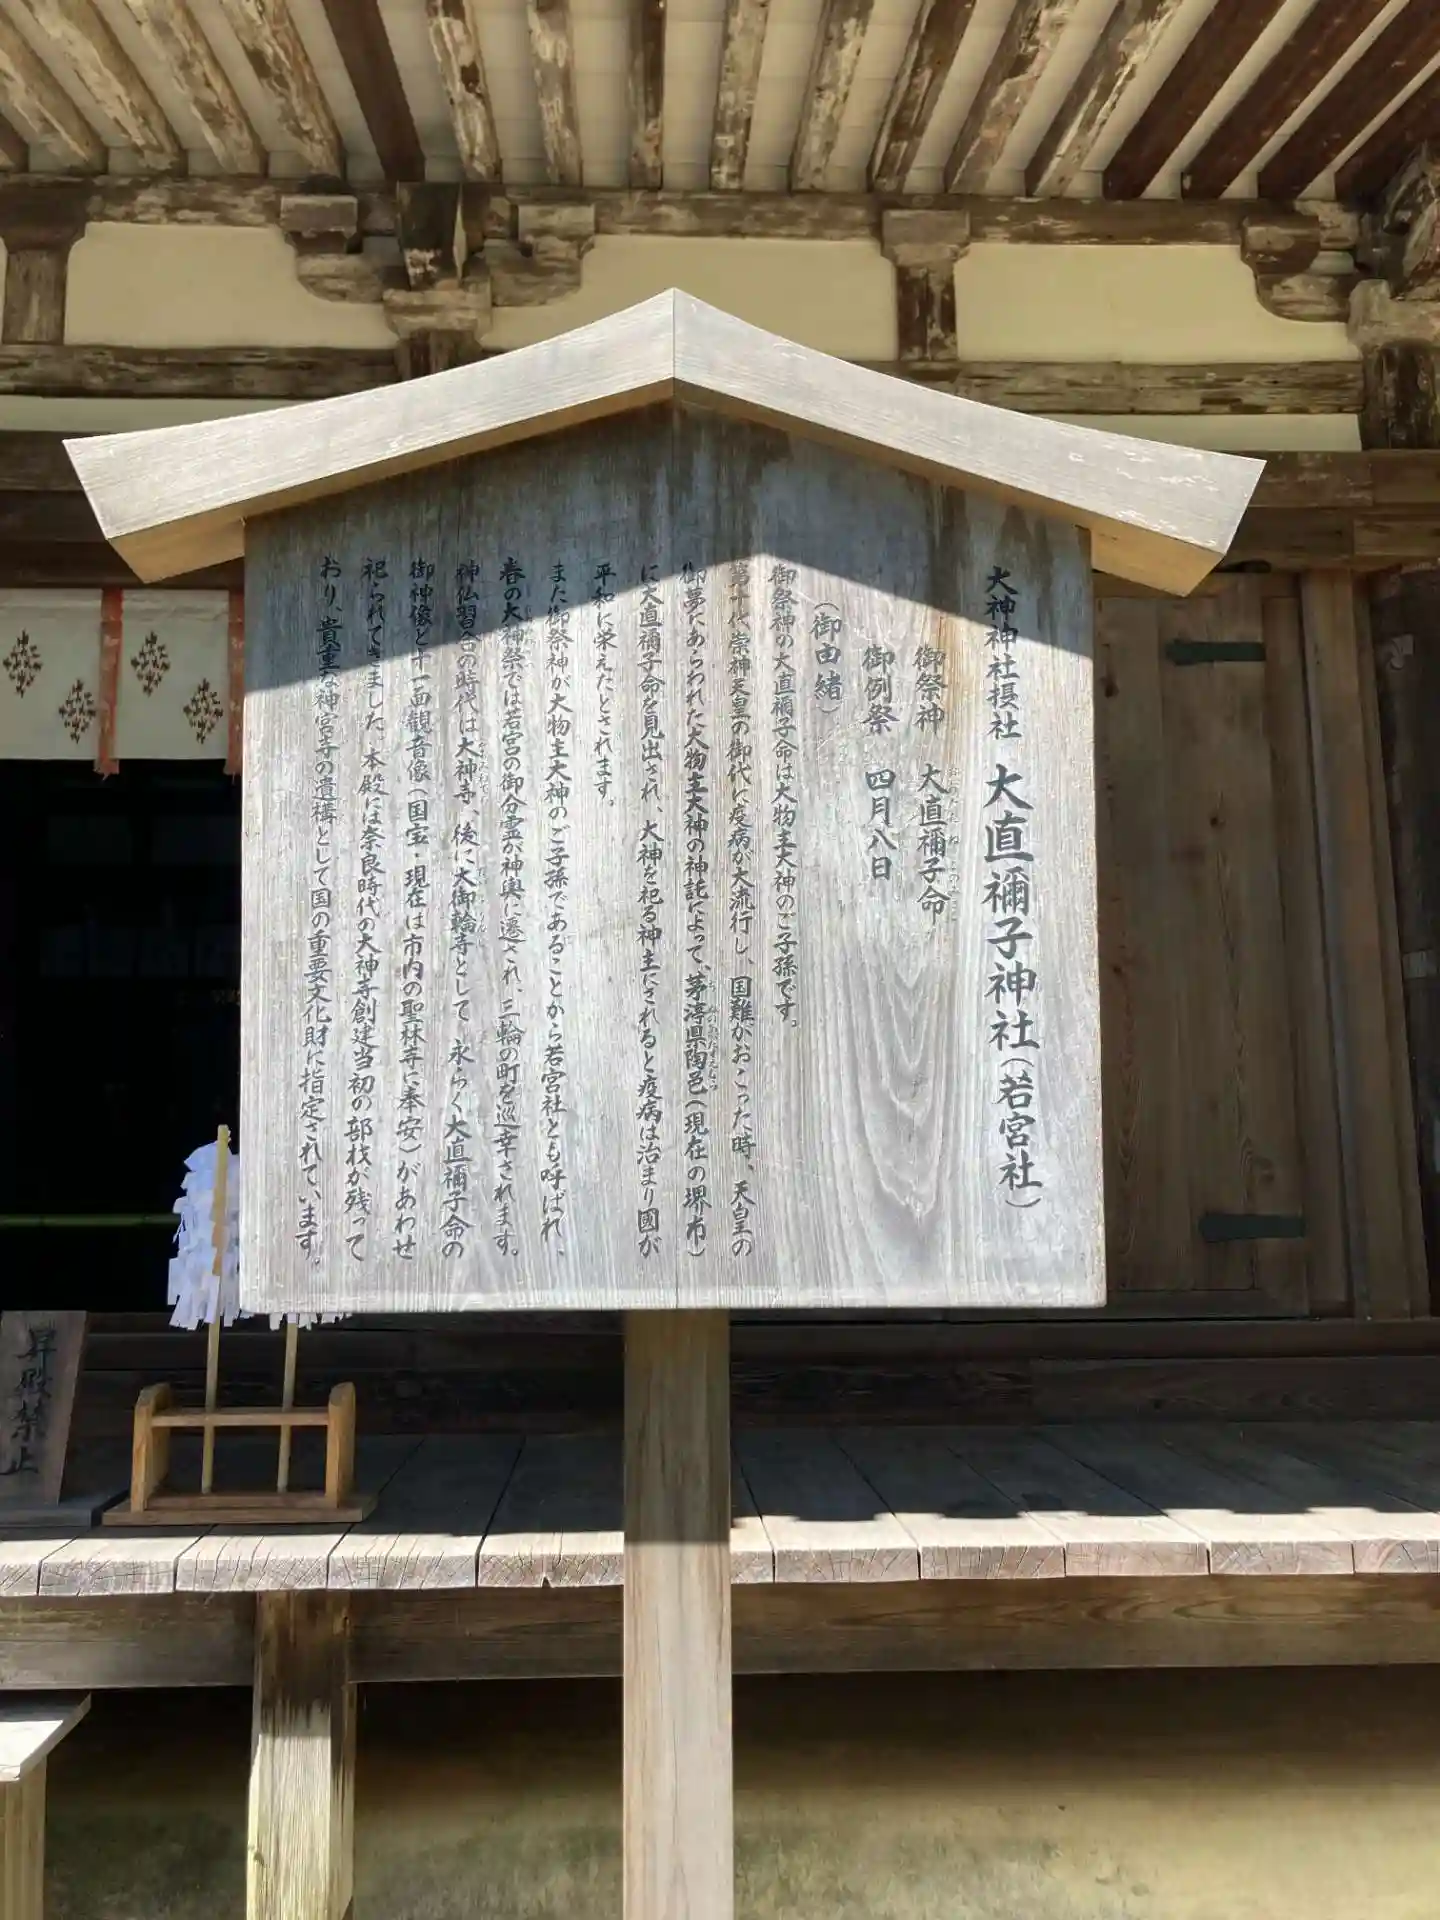 大神神社摂社　大直禰子神社（若宮社）
御祭神　大直禰子命
御例祭　四月八日
（御由緒）
御祭神の大直禰子命は大物主大神のご子孫です。
第十代崇神天皇の御代に疫病が大流行し、国難がおこった時、天皇の
御夢にあらわれた大物主大神の神託によって、茅渟県陶邑（現在の堺市）
に大直禰子命を見出され、大神を祀る神主にされると疫病は治まり國が
平和に栄えたとされます。
また御祭神が大物主大神のご子孫であることから若宮社とも呼ばれ、
春の大神祭では若宮の御分霊が神輿に遷され、三輪の町を巡幸されます。
神仏習合の時代は大神寺、後に大御輪寺として永らく大直禰子命の
御神像と十一面観音像（国宝・現在は市内の聖林寺に奉安）があわせ
祀られてきました。本殿には奈良時代の大神寺創建当初の部材が残って
おり、貴重な神宮寺の遺構として国の重要文化財に指定されています。
昇殿禁止